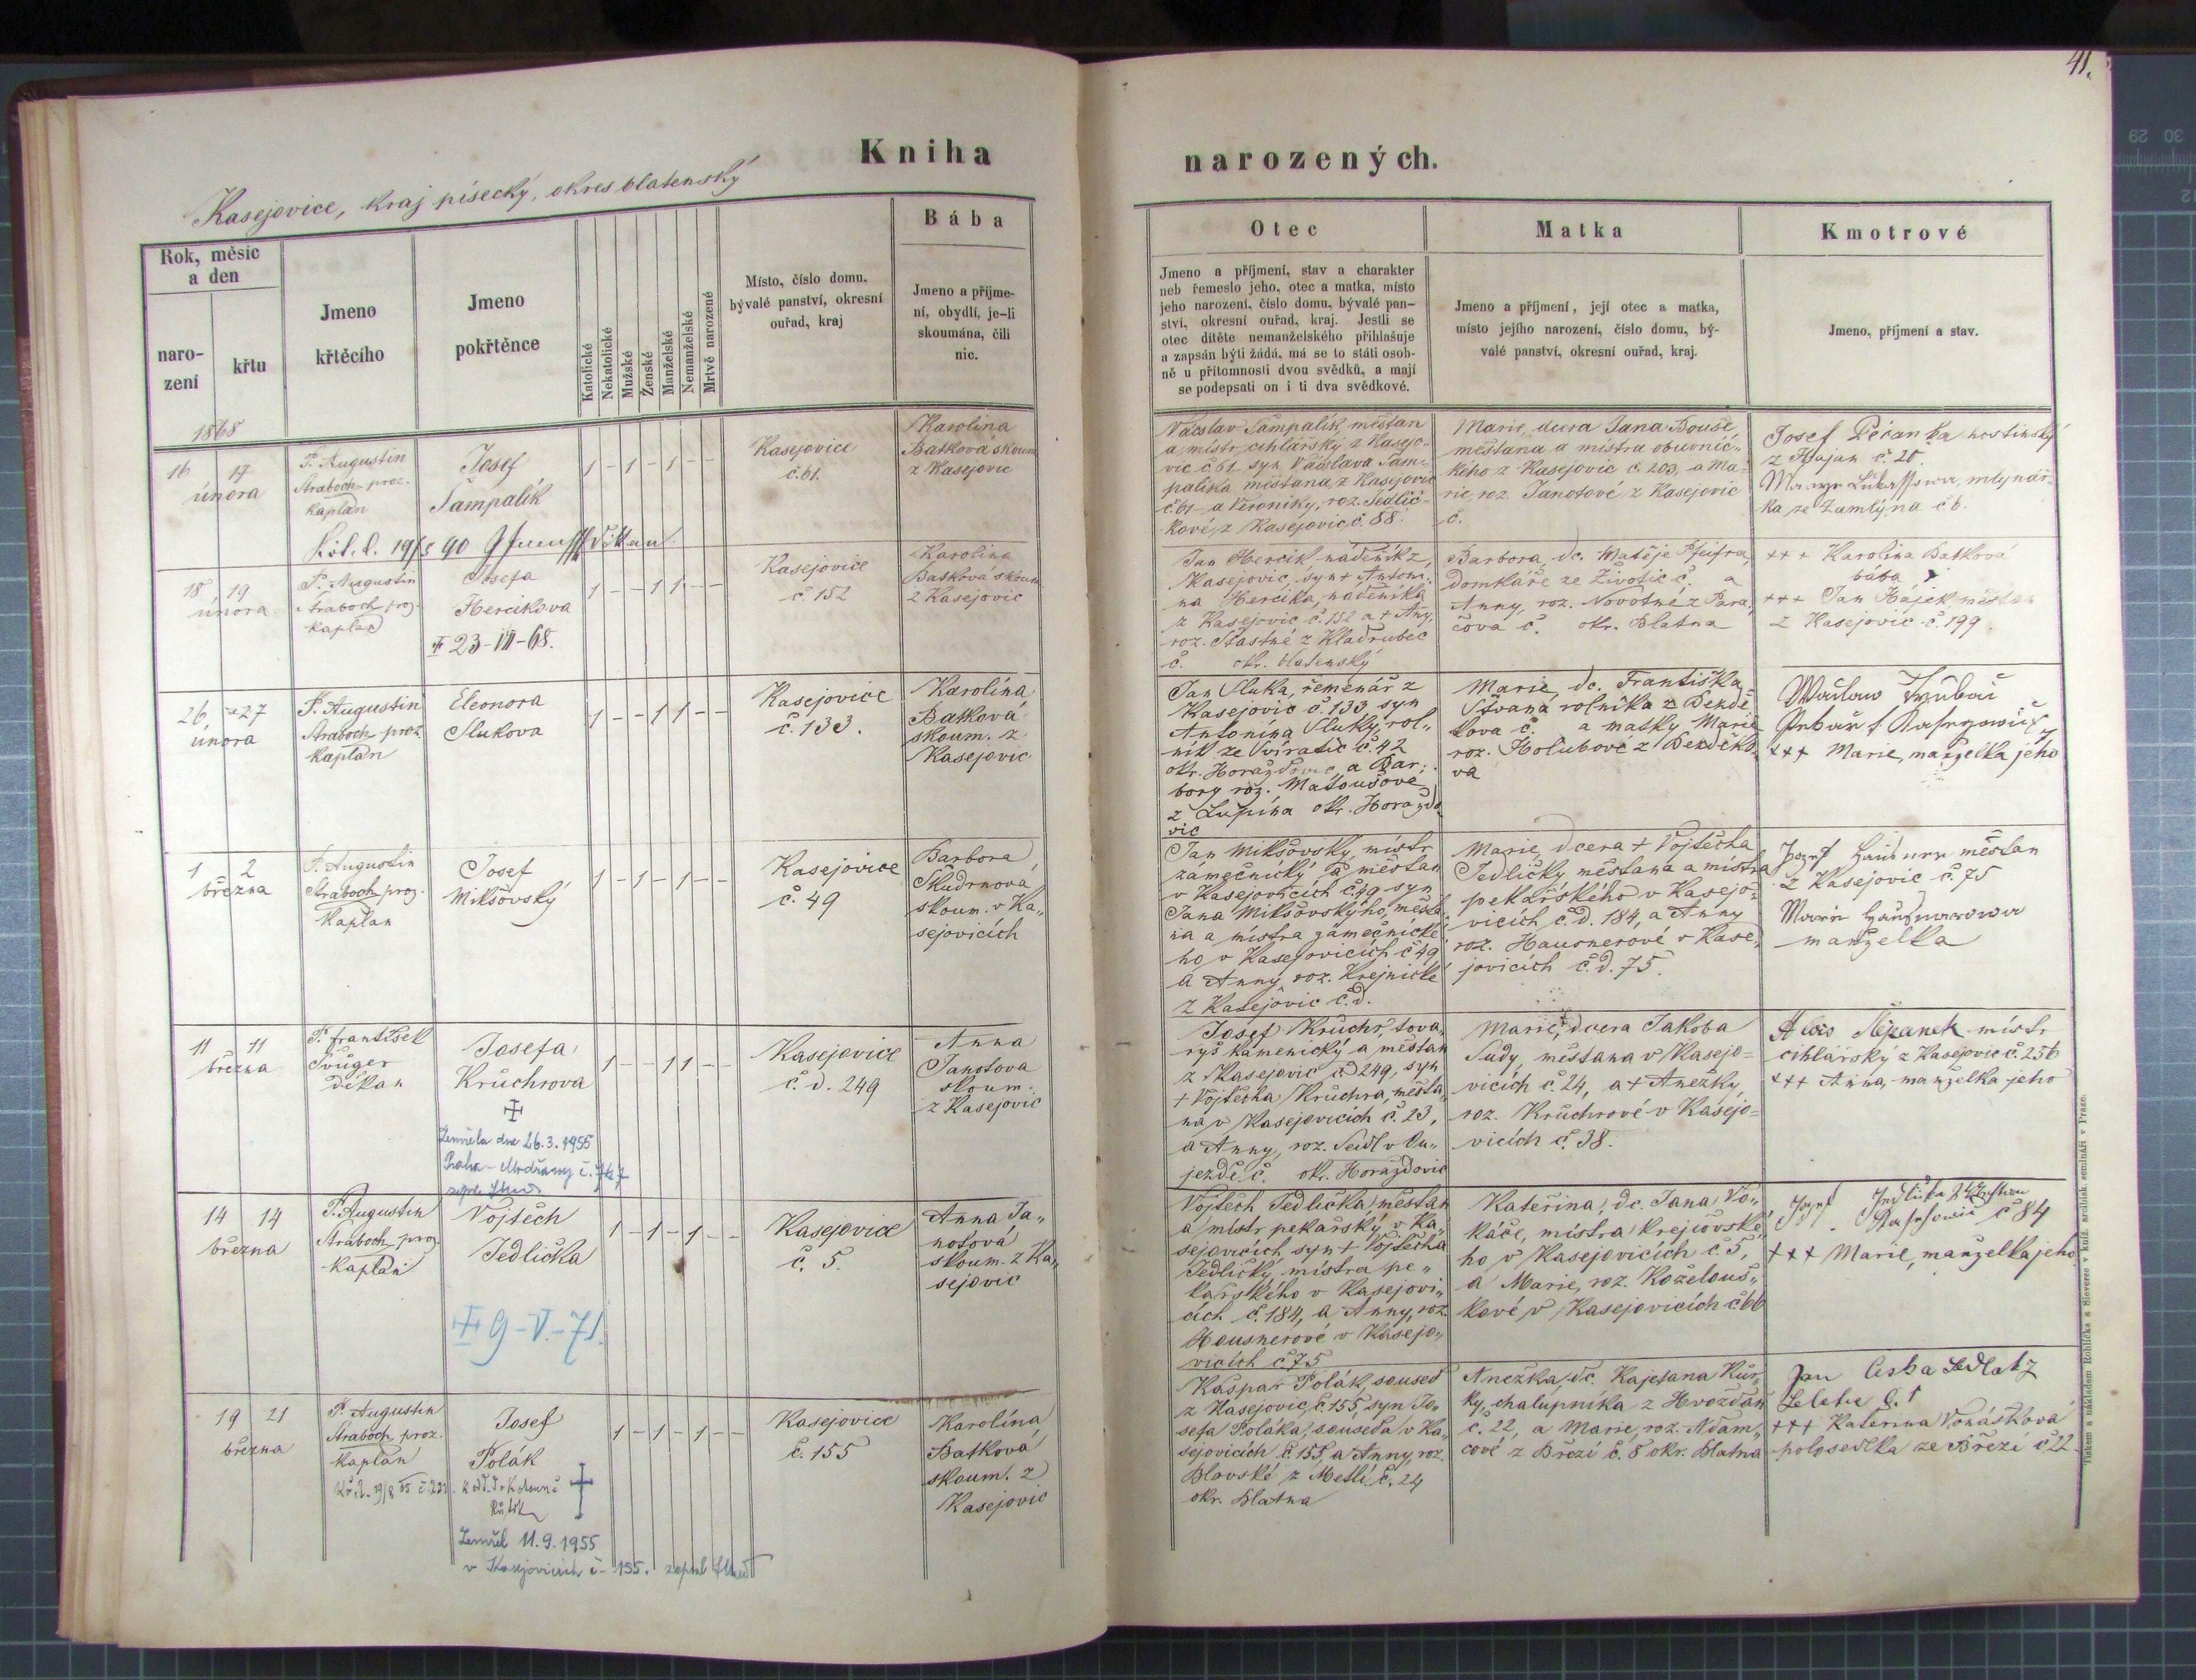 41.
Kniha
narozených.
Kasejovice, kraj písecký, okres blatenský
Rok, měsíc
a den
naro-
zení
křtu
Jmeno
křtěcího
Jmeno
pokřtěnce
Katolické
Nekatolické
Mužské
Ženské
Manželské
Nemanželské
Mrtvě narozené
Místo, číslo domu,
bývalé panství, okresní
ouřad, kraj
Bába
Jmeno a příjme-
ní, obydlí, je-li
skoumána, čili
nic.
Otec
Jmeno a příjmení, stav a charakter
neb řemeslo jeho, otec a matka, místo
jeho narození, číslo domu, bývalé pan-
ství, okresní ouřad, kraj. Jestli se
otec dítěte nemanželského přihlašuje
a zapsán býti žádá, má se to státi osob-
ně u přítomnosti dvou svědků, a mají
se podepsati on i ti dva svědkové.
Matka
Jmeno a příjmení, její otec a matka,
místo jejího narození, číslo domu, bý-
valé panství, okresní ouřad, kraj.
Kmotrové
Jmeno, příjmení a stav.
1868
16 17
února
P. Augustin
Straboch proz.
kaplan
Josef
Šampalík
1 - 1 - 1 - -
Kasejovice
č. 61.
Karolina
Batková skoum
z Kasejovic
Václav Šampalík, měštan
a mistr cihlářský z Kasejo„
vic č. 61 syn Václava Šam-
palíka měštana z Kasejovic
č. 61 a Veroniky, roz. Sedlič-
kové z Kasejovic č. 88.
Marie, dcera Jana Bouše
měštana a mistra obuvnic„
kého z Kasejovic č. 203, a Ma-
rie, roz. Janotové z Kasejovic
č.
Josef Pěčanka hostinský
z Hajan č. 20.
mlynář-
ka ze Zamlýna č 6.
90
18 19
února
P. Augustin
Straboch proz.
kaplan
Josefa
Hercikova
23-III-68.
1 - - 1 1 - -
Kasejovice
č 152
Karolina
Batková skoum
z Kasejovic
Jan Hercik, nádeník z
Kasejovic, syn + Anton„
na Hercika, nádeníka
z Kasejovic č. 152 a + Any,
roz. Štastné z Kladrubec
č. okr. blatenský
Barbora, dc. Matěje Pfeifra,
domkáře ze Životic č. a
Anny, roz. Novotné z Para„
čova č. okr. Blatna
+++ Karolina Batková
bába
+++ Jan Hájek, měštan
z Kasejovic č. 199.
26, 27
února
P. Augustin
Straboch proz.
kaplan
Eleonora
Slukova
1 - - 1 1 - -
Kasejovice
č. 133.
Karolína
Batková
skoum. z
Kasejovic
Jan Sluka, řemenář z
Kasejovic č. 133, syn
Antonína Sluky, rol„
ník ze Svíratic č. 42
okr. Horažďovic a Bar„
bory roz. Matoušové
z Lupína okr. Horažďo
vic
Marie, dc. Františka
rolníka z Bezdě-
kova č. a matky Marie
roz. Holubové z Bezděko„
va
+++ Marie, manželka jeho
1 2
března
P. Augustin
Straboch proz.
kaplan
Josef
Mikšovský
1 - 1 - 1 - -
Kasejovice
č. 49
Barbora
Škudrnova
skoum. v Ka„
sejovicích
Jan Mikšovský, mistr
zámečnický a měštan
v Kasejovicích č. 49 syn
Jana Mikšovského, měšťa-
na a mistra zámečnické-
ho v Kasejovicích č 49
a Anny, roz. Krejnické
z Kasejovic č. d.
Marie, dcera + Vojtěcha
Jedličky, měštana a mistra
pekařského v Kasejo-
vicích č. d. 184, a Anny
roz. Hausnerové v Kase„
jovicích č. d. 75.
měštan
z Kasejovic č. 75
manželka
11 11
března
P. František
děkan
Josefa
Krůchrova
Zemřela dne 26.3.1955
Praha - Modřany č. 767
1 - - 1 1 - -
Kasejovice
č. d. 249
Anna
Janotova
skoum.
z Kasejovic
Josef Krůchr, tova„
ryš kamenický a měštan
z Kasejovic č. d 249, syn
+ Vojtěcha Krůchra, měšťa„
na v Kasejovicích č. 23,
a Anny, roz. Seidl v Ou„
jezdě č. okr. Horažďovic
Marie, dcera Jakoba
Sudy, měštana v Kasejo=
vicích č. 24, a + Anežky,
roz. Krůchrové v Kasejo=
vicích č. 38.
Alois Štěpanek mistr
cihlářský z Kasejovic č. 256
+++ Anna, manželka jeho
14 14
března
P. Augustin
Straboch proz.
kaplan
Vojtěch
Jedlička
9-V.-71.
1 - 1 - 1 - -
Kasejovice
č. 5.
Anna Ja„
notová
skoum. z Ka„
sejovic
Vojtěch Jedlička, měštan
a mistr pekařský v Ka„
sejovicích, syn + Vojtěcha
Jedličky, mistra pe„
kařského v Kasejovi„
cích č. 184, a Anny, roz.
Hausnerové v Kasejo„
vicích č 75
Kateřina, dc. Jana Vo„
káče, mistra krejčovské
ho v Kasejovicích č. 5,
a Marie, roz. Koželouš„
kové v Kasejovicích č 66
č 84
+++ Marie, manželka jeho
19 21
března
P. Augustin
Straboch proz.
kaplan
Josef
Polák
Zemřel 11.9.1955
v Kasejovicích č. 155. zapsal
1 - 1 - 1 - -
Kasejovice
č. 155
Karolína
Batková
skoum. z
Kasejovic
Kašpar Polák, soused
z Kasejovic, č. 155, syn Jo„
sefa Poláka, souseda v Ka„
sejovicích č. 155, a Anny, roz.
Blovské z Metlí č. 24
okr. Blatna
Anežka, dc. Kajetana Kůr„
ky, chalupníka z Hvožďan
č. 22, a Marie, roz. Adam„
cové z Březí č. 8 okr. Blatna
Jan Ceska
+++ Kateřina Vonášková
polosedlka ze Březí č 22
Tiskem a nákladem Rohlíčka a Sieverse v kníž. arcibisk. semináři v Praze.